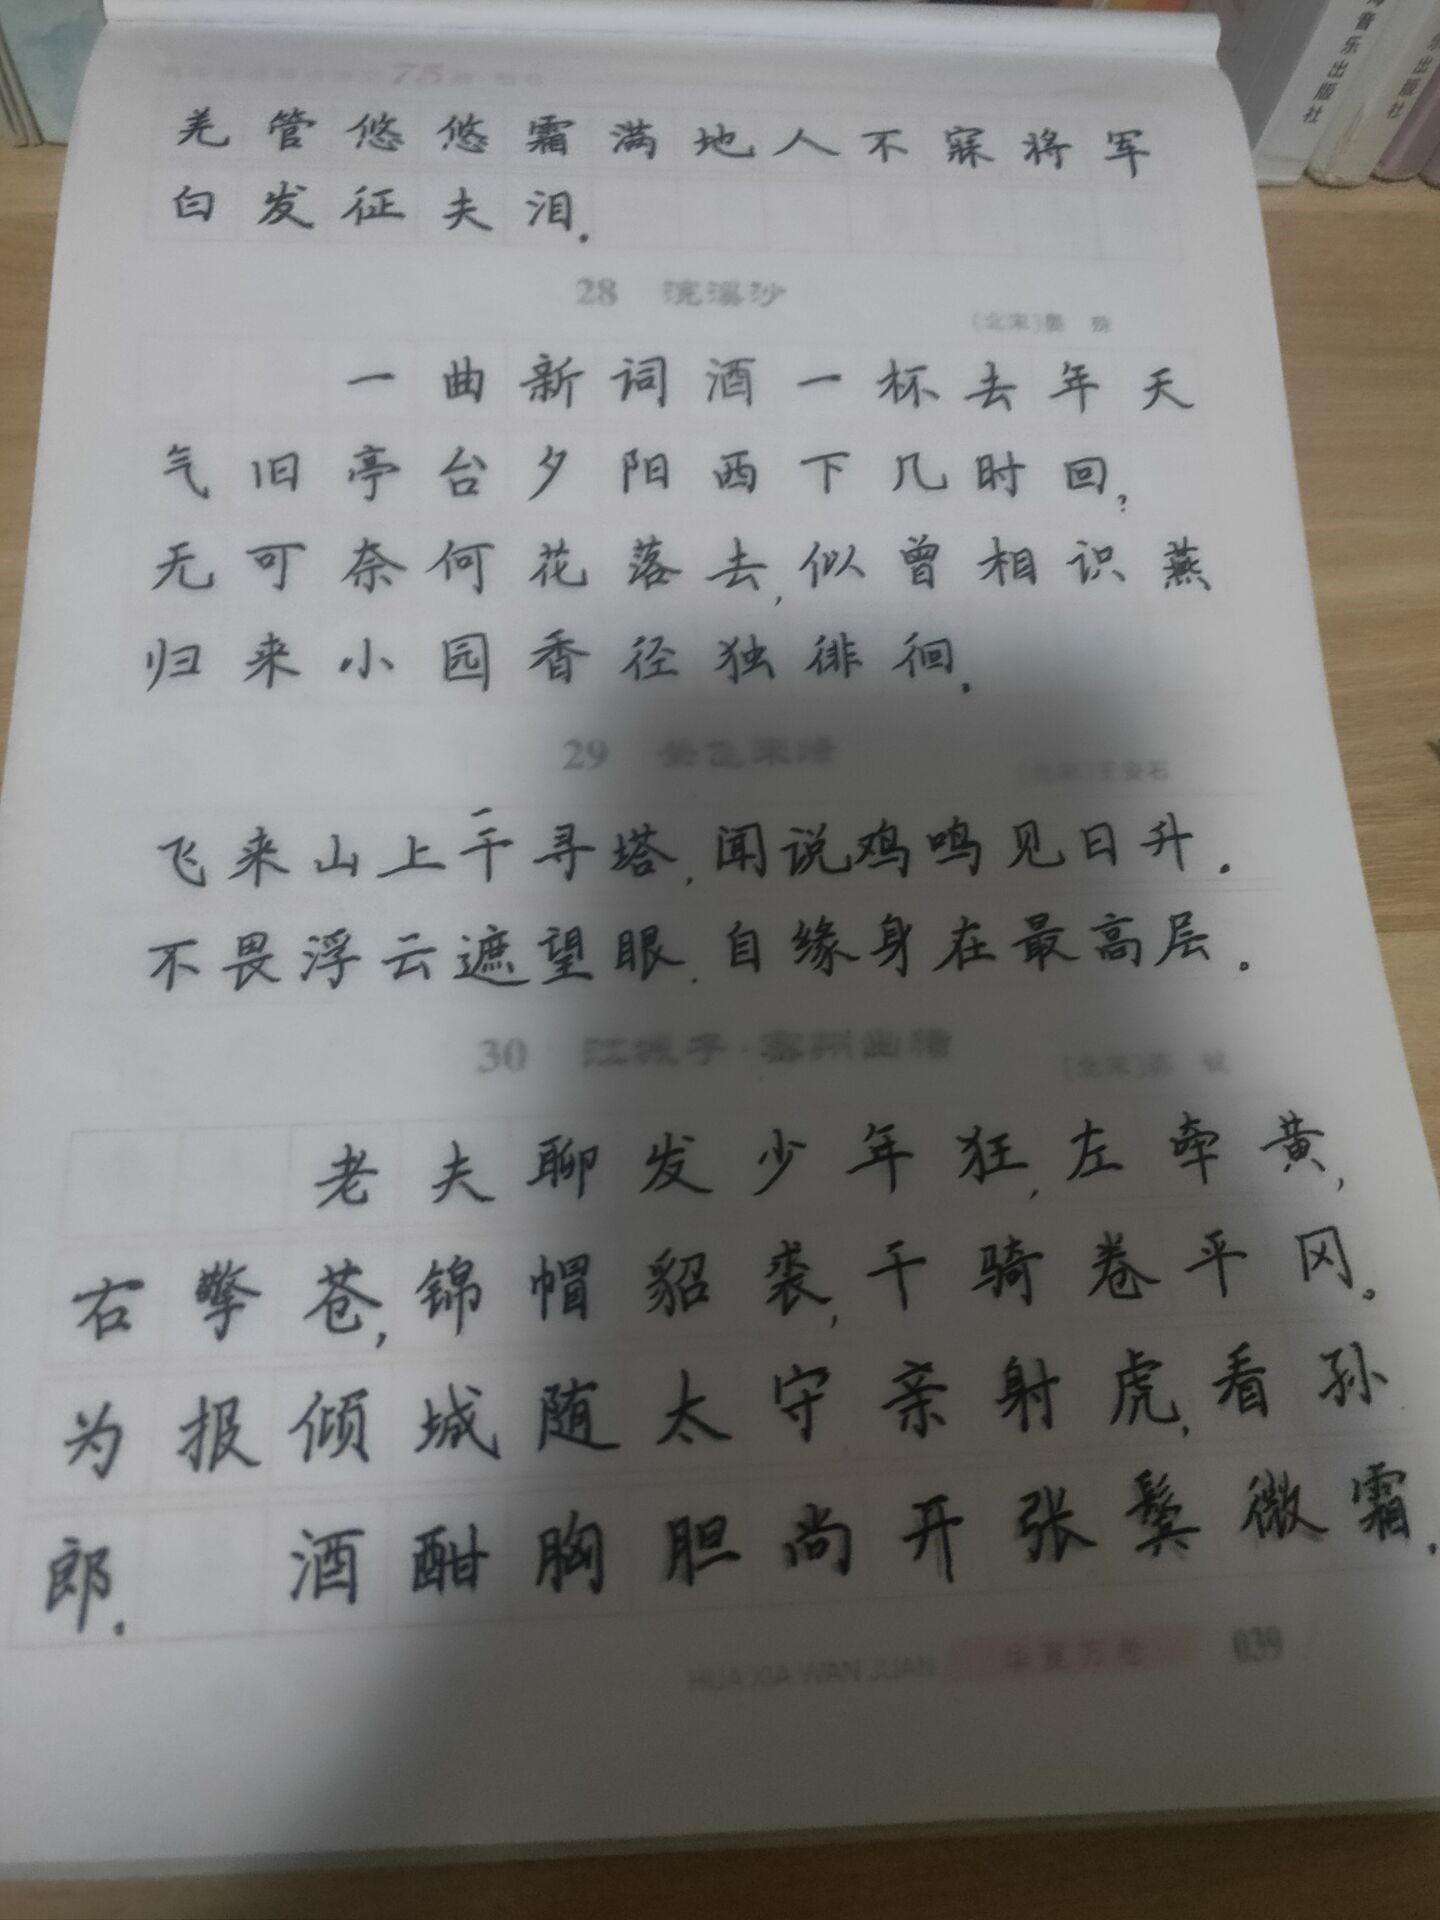 75
羌管悠悠霜满地人不寐将军
白发征夫泪.
28 浣溪沙
[北宋]晏 殊
一曲新词酒一杯去年天
气旧亭台夕阳西下几时回?
无可奈何花落去,似曾相识燕
归来小园香径独徘徊.
29 登飞来峰
[北宋]王安石
飞来山上千寻塔,闻说鸡鸣见日升.
不畏浮云遮望眼.自缘身在最高层.
30 江城子·密州出猎
[北宋]苏 轼
老夫聊发少年狂,左牵黄,
右擎苍,锦帽貂裘,千骑卷平冈。
为报倾城随太守亲射虎,看孙
郎. 酒酣胸胆尚开张鬓微霜.
HUA XIA WAN JUAN 华夏万卷 039
音乐出版社
乐出版社